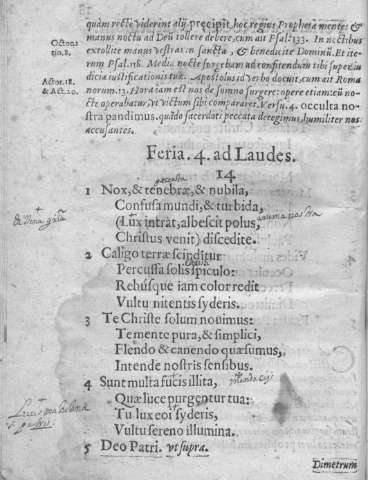 quàm rectè viderint alij. precipit hoc regius Propheta mentes &
manus noctu ad Deū tollere debere, cum ait Psal: 133. In noctibus
extollite manus vestras in sancta, & benedicite Dominū. Et ite-
rum Psal. 118. Media nocte surgebam ad confitendūm tibi super iu-
dicia iustificationis tuæ. Apostolus id verbo docuit, cum ait Roma
norum. 13. Hora iam est nos de somno surgere: opere etiam: cū no-
cte operabatur, vt victum sibi compararet. Versu. 4. occulta no-
stra pandimus. quādo sacerdoti peccata detegimus, humiliter nos
accusantes.
Octono
rio. 8.
Actor. 18.
& Act. 20.
Feria. 4. ad Laudes.
14
1 Nox, & tenebræ, & nubila,
Confusa mundi, & turbida,
(Lux intrat, albescit polus,
Christus venit) discedite.
2 Caligo terræ scinditur
Percussa solis spiculo:
Rebúsque iam color redit
Vultu nitentis syderis.
3 Te Christe solum nouimus:
Te mente pura, & simplici,
Flendo & canendo quæsumus,
Intende nostris sensibus.
4 Sunt multa fucis illita,
Quæ luce purgentur tua:
Tu lux eoi syderis,
Vultu sereno illumina.
5 Deo Patri. vt supra.
Dimetrum